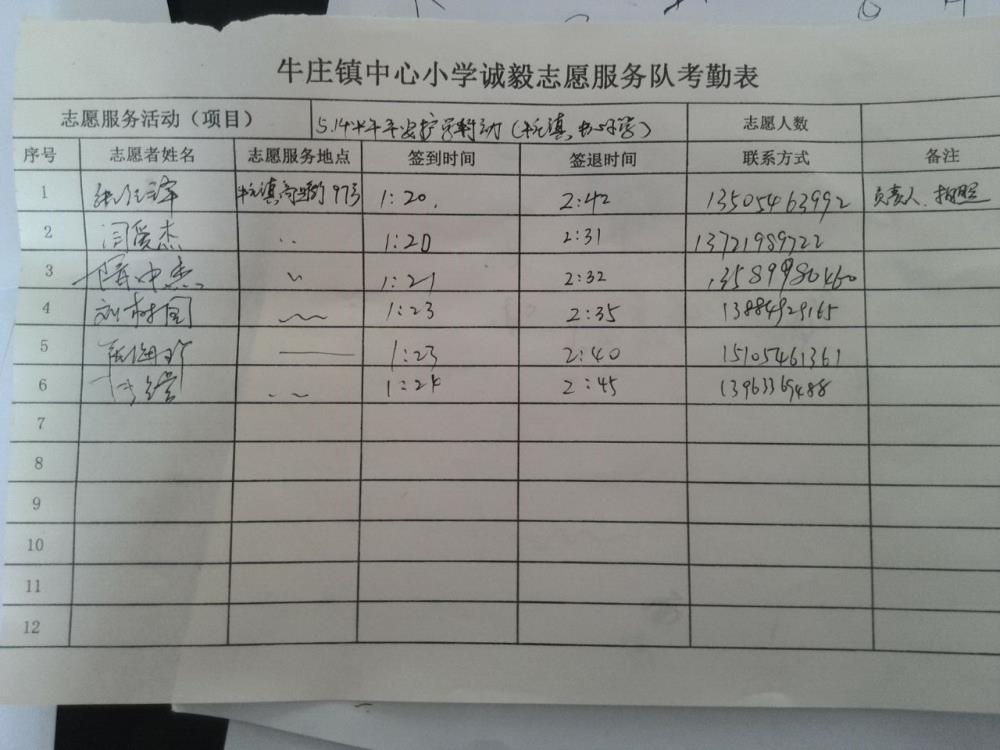 牛庄镇中心小学诚毅志愿服务队考勤表
志愿服务活动（项目） 5.14 志愿人数
序号 志愿者姓名 志愿服务地点 签到时间 签退时间 联系方式 备注
1 97号 1:20. 2:42 13505463992 负责人、拍照
2 闫爱杰 〃 1:20 2:31 13721989722
3 〃 1:21 2:32
4 刘树国 1:23 2:35 13884929165
5 1:23 2:40 15105461361
6 1:24 2:45 13963369488
7
8
9
10
11
12